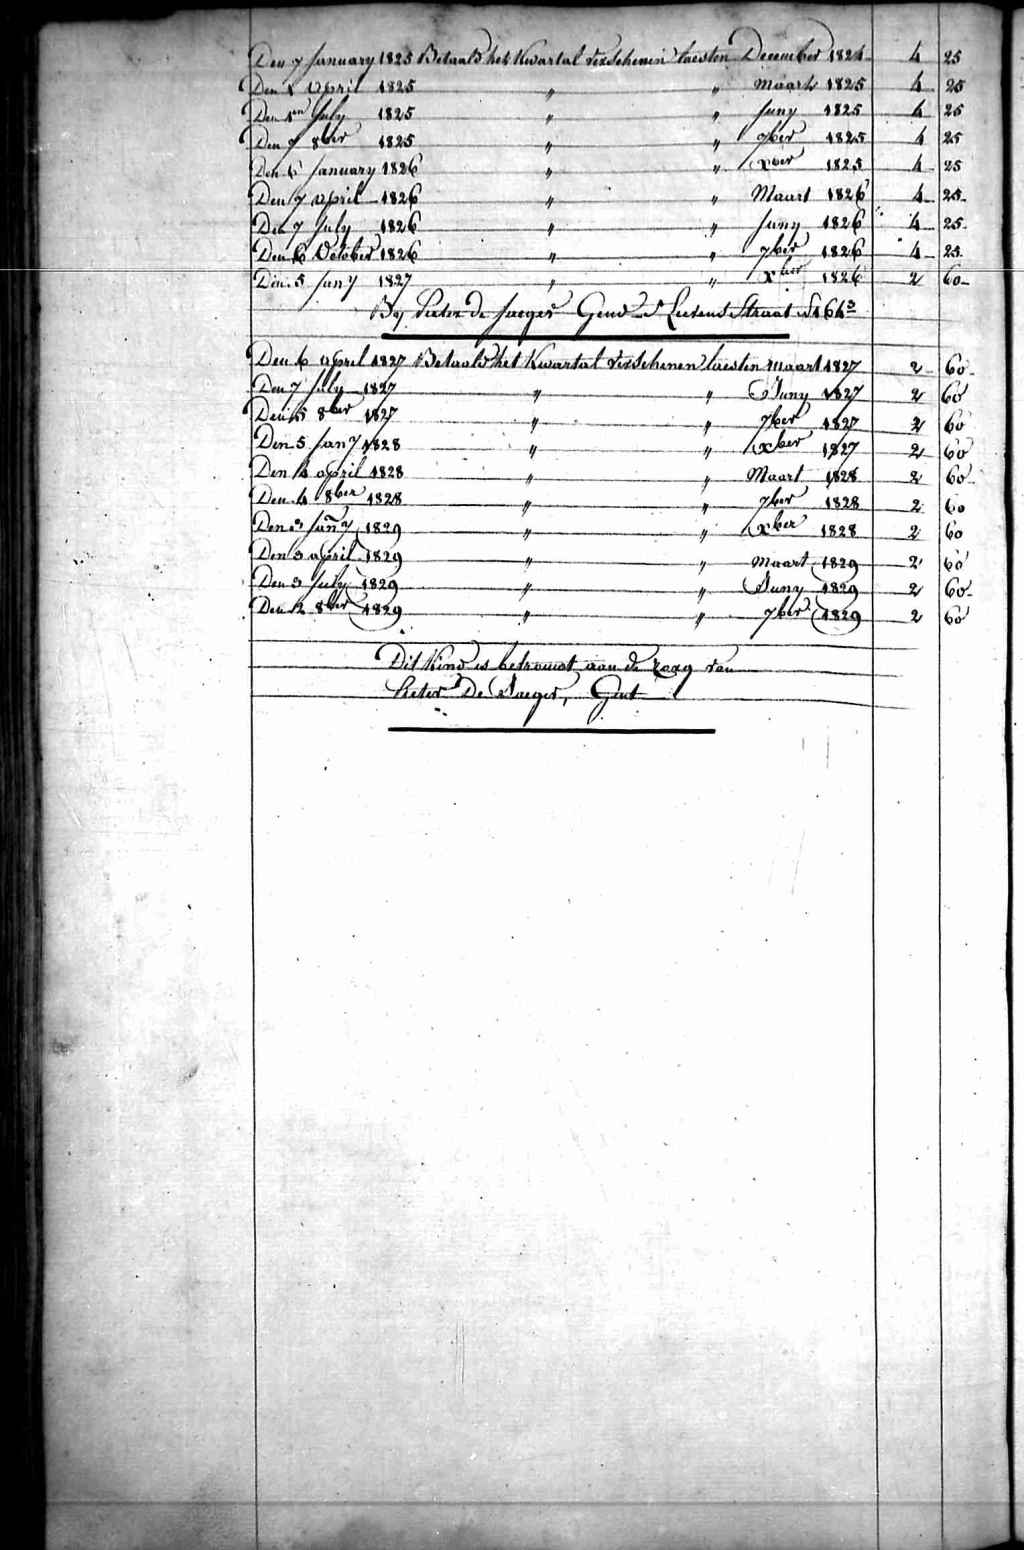 Den 7 January 1825 Betaald het Kwartal verschenen laesten December 1824 4 25
Den 8 april 1825 " " Maart 1825 4 25
Den 1en July 1825 " " Juny 1825 4 25
Den 7 8ber 1825 " " 7ber 1825 4 25
Den 6 January 1826 " " Xber 1825 4 25
Den 7 april 1826 " " Maart 1826 4 25
Den 7 July 1826 " " Juny 1826 4 25
Den 6 October 1826 " " 7ber 1826 4 25
Den 5 Jany 1827 " " Xber 1826 2 60
By Pieter de Jaeger Gend St Lievens Straat
Den 6 april 1827 Betaald het Kwartal verschenen laesten maart 1827 2 60
Den 7 July 1827 " " Juny 1827 2 60
Den 5 8ber 1827 " " 7ber 1827 2 60
Den 5 Jany 1828 " " Xber 1827 2 60
Den 4 april 1828 " " Maart 1828 2 60
Den 4 8ber 1828 " " 7ber 1828 2 60
Den 3 Jany 1829 " " Xber 1828 2 60
Den 3 april 1829 " " maart 1829 2 60
Den 3 July 1829 " " Juny 1829 2 60
Den 12 8ber 1829 " " 7ber 1829 2 60
Dit Kind is betrouwt aan de zorg van
Pieter De Jaeger, Gent